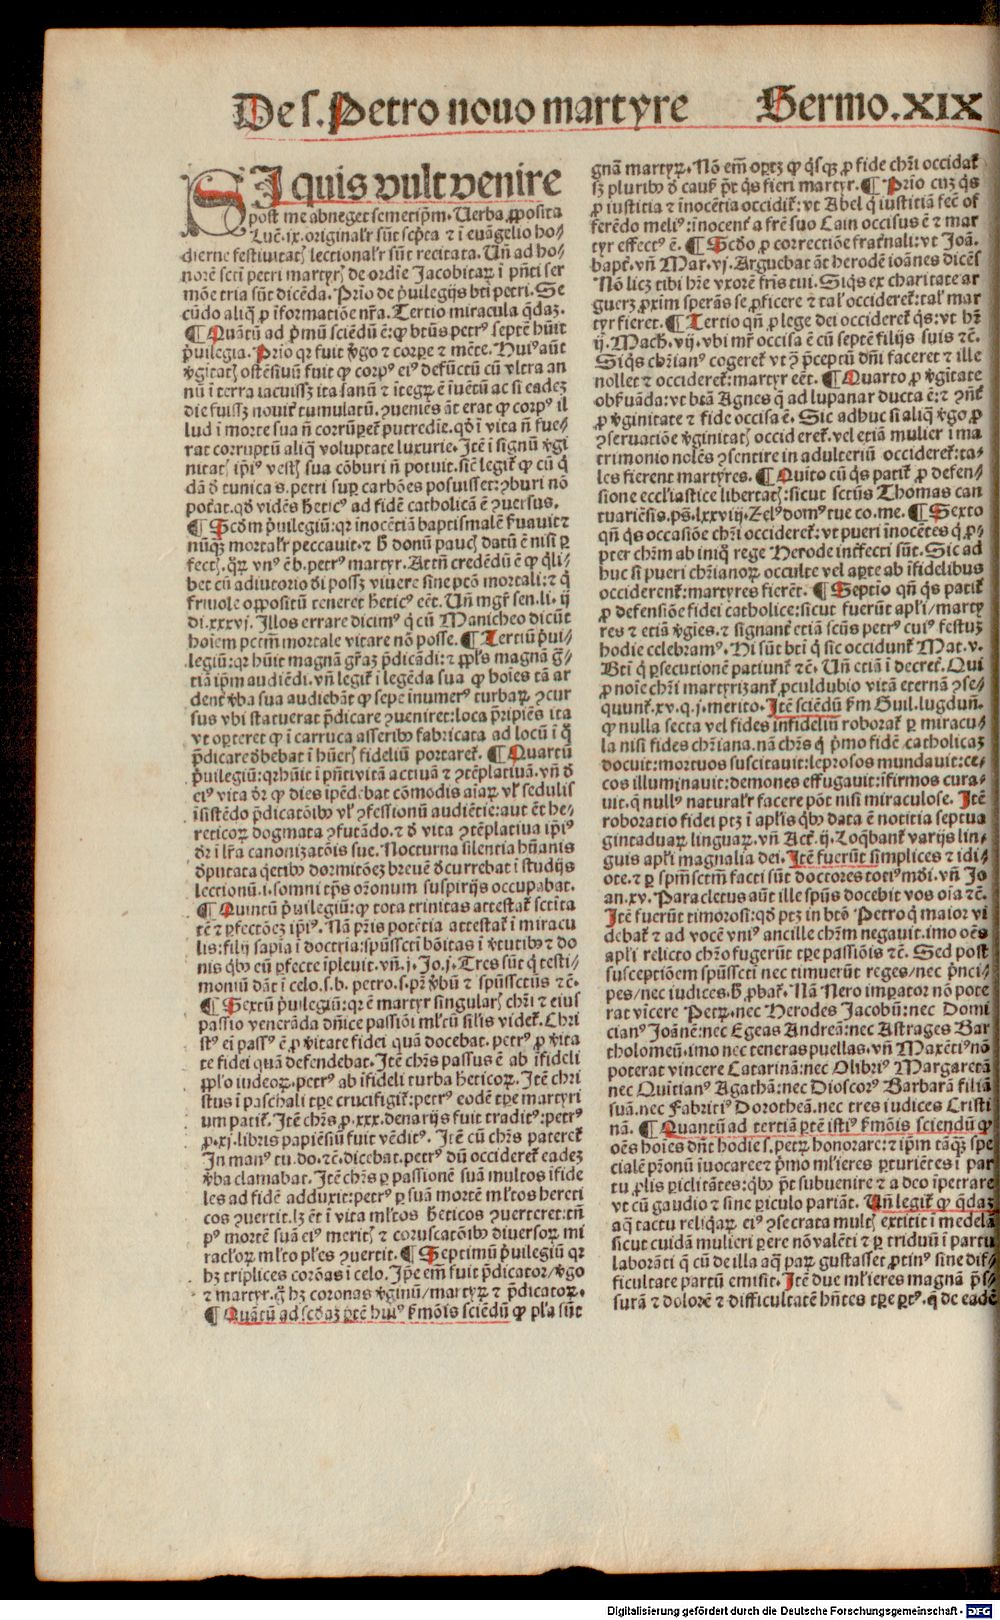 De s. Petro nouo martyre Sermo. XIX
SI quis vult venire
post me abneget semetip̄m. Uerba ꝓposita
Luc̄. ix. originalr̄ sūt scp̄ta ⁊ ī euāgelio ho-
dierne festiuitatꝭ lectionalr̄ sūt recitata. Un̄ ad ho-
norē scti petri martyrꝭ de ordīe Jacobitaꝝ ī pn̄ti ser
mōe tria sūt dicēda. Prīo de p̄uilegijs bti petri. Se
cūdo aliqͥ ꝓ īformatiōe nr̄a. Tertio miracula q̄daꝫ.
¶ Quātū ad p̄mū sciēdū ē: ꝙ btūs petrꝰ septē hūit
p̄uilegia. Prīo qꝛ fuit v̄go ⁊ corpe ⁊ mēte. Huiꝰ aūt
v̄gitatꝭ ostēsiuū fuit ꝙ corpꝰ eiꝰ defūctū cū vltra an
nū ī terra iacuissꝫ ita sanū ⁊ ītegꝝ ē īuētū ac si eadeꝫ
die fuissꝫ nouit̄ tumulatū. ꝯueniēs āt erat ꝙ corpꝰ il
lud ī morte sua n̄ corrūꝑet̄ putredie. qd̄ ī vita n̄ fue-
rat corruptū aliqͣ voluptate luxurie. Itē ī signū v̄gi
nitatꝭ ip̄iꝰ vestꝭ sua cōburi n̄ potuit. sic̄ legit̄ ꝙ cū q̄
dā d̄ tunica s. petri suꝑ carbōes posuisset: ꝯburi nō
pot̄at. qd̄ vidēs h̄eticꝰ ad fidē catholicā ē ꝯuersus.
¶ Scd̄m p̄uilegiū: qꝛ inocētiā baptismalē ẜuauit ⁊
nūqͣꝫ mortalr̄ peccauit. ⁊ h̄ donū paucꝭ datū ē nisi ꝑ
fectꝭ. qͣꝝ vnꝰ ē b. petrꝰ martyr. Attn̄ credēdū ē ꝙ qͥli-
bet cū adiutorio dei possꝫ viuere sine pctō mortali: ⁊ qͥ
friuole oppositū teneret h̄eticꝰ eēt. Un̄ mgr̄ sen. li. ij
di. xxxvj. Illos errare dicimꝰ qͥ cū Manicheo dicūt
hoiem pctm̄ mortale vitare nō posse. ¶ Tertiū p̄ui-
legiū: qꝛ hūit magnā gr̄aꝫ p̄dicādi: ⁊ ppl̄s magnā gr̄-
tiā ip̄m audiēdi. vn̄ legit̄ ī legēda sua ꝙ hoies tā ar
dent̄ v̄ba sua audiebāt ꝙ sepe inumerꝰ turbaꝝ ꝯcur
sus vbi statuerat p̄dicare ꝯueniret: loca p̄ripiēs ita
vt oꝑteret ꝙ ī carruca asseribꝰ fabricata ad locū ī qͦ
p̄dicare d̄bebat ī hūerꝭ fideliū portaret̄. ¶ Quartū
p̄uilegiū: qꝛ hūit ī pn̄ti vitā actiuā ⁊ ꝯtēplatiuā. vn̄ d̄
eiꝰ vita dr̄ ꝙ dies īpēdebat cōmodis aīaꝝ vl̄ sedulis
īsistēdo p̄dicatōibꝰ vl̄ ꝯfessionū audiētie: aut ēt he-
reticoꝝ dogmata ꝯfutādo. ⁊ d̄ vita ꝯtēplatiua ip̄iꝰ
dr̄ ī lr̄a canonizatōis sue. Nocturna silentia hūanis
d̄putata qͥetibꝰ dormitōeꝫ breuē d̄currebat ī studijs
lectionū. i. somni tp̄s orōnum suspirijs occupabat.
¶ Quintū p̄uilegiū: ꝙ tota trinitas attestat̄ sctita
tē ⁊ ꝑfectōeꝫ ip̄iꝰ. Nā pr̄is potētia attestat̄ ī miracu
lis: filij sapīa ī doctria: spūssct̄i bōitas ī v̄tutibꝰ ⁊ do
nis qͥbꝰ eū ꝑfecte īpleuit. vn̄. j. Jo. j. Tres sūt qͥ testi-
moniū dāt ī celo. s. b. petro. s. pr̄ v̄bū ⁊ spūssctūs ⁊c̄.
¶ Sextū p̄uilegiū: qꝛ ē martyr singularꝭ chr̄i ⁊ eius
passio venerāda dn̄ice passiōi ml̄tū silis videt̄. Chri
stꝰ eī passꝰ ē ꝓ v̄itate fidei quā docebat. petrꝰ ꝓ v̄ita
te fidei quā defendebat. Itē chr̄s passus ē ab īfideli
ppl̄o iudeoꝝ. petrꝰ ab īfideli turba h̄eticoꝝ. Itē chri
stus ī paschali tp̄e crucifigit̄: petrꝰ eodē tp̄e martyri
um patit̄. Itē chr̄s ꝓ. xxx. denarijs fuit traditꝰ: petrꝰ
ꝓ. xj. libris papiēsiū fuit vēditꝰ. Itē cū chr̄s pateret̄
In manꝰ tu. do. ⁊c̄. dicebat. petrꝰ dū occideret̄ eadeꝫ
v̄ba clamabat. Itē chr̄s ꝑ passionē suā multos īfide
les ad fidē adduxit: petrꝰ ꝑ suā mortē ml̄tos hereti
cos ꝯuertit. lꝫ ēt ī vita ml̄tos h̄eticos ꝯuerteret: tn̄
pꝰ mortē suā eiꝰ meritꝭ ⁊ coruscatōibꝰ diuersoꝝ mi
racl̄oꝝ ml̄to pl̄es ꝯuertit. ¶ Septimū p̄uilegiū qꝛ
hꝫ triplices corōas ī celo. Ip̄e em̄ fuit p̄dicator/ v̄go
⁊ martyr. gͦ hꝫ coronas v̄ginū/ martyꝝ ⁊ p̄dicatoꝝ.
¶ Quātū ad scd̄aꝫ ꝑtē huiꝰ ẜmōis sciēdū ꝙ pl̄a sūt
gnā martyꝝ. Nō em̄ oꝑtꝫ ꝙ qͥsqꝫ ꝓ fide chr̄i occidat̄
sꝫ pluribꝰ d̄ causꝭ pt̄ qͥs fieri martyr. ¶ Prīo cuꝫ qͥs
ꝓ iustitia ⁊ īnocētia occidit̄: vt Abel qͥ iustitiā fec̄ of
ferēdo meliꝰ: īnocent̄ a fr̄e suo Cain occisus ē ⁊ mar
tyr effectꝰ ē. ¶ Scd̄o ꝓ correctiōe frat̄nali: vt Joā.
bapt̄. vn̄ Mar. vj. Arguebat āt herodē ioānes dicēs
Nō licꝫ tibi hr̄e vxorē fr̄is tui. Siqͥs ex charitate ar
gueꝫ ꝓxim sperās se ꝓficere ⁊ tal̄ occideret̄: tal̄ mar
tyr fieret. ¶ Tertio qn̄ ꝓ lege dei occideret̄ qͥs: vt hr̄
ij. Mach. vij. vbi mr̄ occisa ē cū septē filijs suis ⁊c̄.
Siqͥs chr̄ianꝰ cogeret̄ vt ꝯ p̄ceptū dn̄i faceret ⁊ ille
nollet ⁊ occideret̄: martyr eēt. ¶ Quarto ꝓ v̄gitate
obẜuāda: vt btā Agnes q̄ ad lupanar ducta ē: ⁊ ꝯn̄t̄
ꝓ v̄ginitate ⁊ fide occisa ē. Sic adhuc si aliqͣ v̄go ꝓ
ꝯseruatiōe v̄ginitatꝭ occideret̄. vel etiā mulier ī ma
trimonio nolēs ꝯsentire in adulteriū occideret̄: ta-
les fierent martyres. ¶ Quīto cū qͥs patit̄ ꝓ defen-
sione eccl̄iastice libertatꝭ: sicut sctūs Thomas can
tuariēsis. ps. lxxviij. Zelꝰ domꝰ tue co. me. ¶ Sexto
qn̄ qͥs occasiōe chr̄i occideret̄: vt pueri īnocētes qͥ ꝓ-
pter chr̄m ab iniqͦ rege Herode int̄fecti sūt. Sic ad
huc si pueri chr̄ianoꝝ occulte vel aꝑte ab īfidelibus
occiderent̄: martyres fierēt. ¶ Septīo qn̄ qͥs patit̄
ꝓ defensiōe fidei catholice: sicut fuerūt apl̄i/ marty
res ⁊ etiā v̄gies. ⁊ signant̄ etiā scūs petrꝰ cuiꝰ festuꝫ
hodie celebramꝰ. Hi sūt bti qͥ sic occidunt̄ Mat. v.
Bti qͥ ꝑsecutionē patiunt̄ ⁊c̄. Un̄ etiā ī decret̄. Qui
ꝓ noīe chr̄i martyrizant̄ ꝓculdubio vitā eternā ꝯse-
quunt̄. xv. q. j. merito. Itē sciēdū ẜm Guil. lugdun̄.
ꝙ nulla secta vel fides infideliū roborat̄ ꝑ miracu-
la nisi fides chr̄iana. nā chr̄s qͥ p̄mo fidē catholicaꝫ
docuit: mortuos suscitauit: leprosos mundauit: ce-
cos illuminauit: demones effugauit: īfirmos cura-
uit. q̄ nullꝰ naturalr̄ facere pōt nisi miraculose. Itē
roboratio fidei ptꝫ ī apl̄is qͥbꝰ data ē notitia septua
gintaduaꝝ linguaꝝ. vn̄ Act̄. ij. Loqͣbant̄ varijs lin-
guis apl̄i magnalia dei. Itē fuerūt simplices ⁊ idi-
ote. ⁊ ꝑ spm̄sctm̄ facti sūt doctores totiꝰ mūdi. vn̄ Jo
an. xv. Paracletus aūt ille spūs docebit vos oīa ⁊c̄.
Itē fuerūt timorosi: qd̄ ptꝫ in btō Petro qͥ maior vi
debat̄ ⁊ ad vocē vniꝰ ancille chr̄m negauit. imo oēs
apl̄i relicto chr̄o fugerūt tp̄e passiōis ⁊c̄. Sed post
susceptiōem spūssct̄i nec timuerūt reges/ nec p̄nci-
pes/ nec iudices. h̄ ꝓbat̄. Nā Nero imꝑator nō pote
rat vicere Petꝝ. nec Herodes Jacobū: nec Domi
cianꝰ Joānē: nec Egeas Andreā: nec Astrages Bar
tholomeū. imo nec teneras puellas. vn̄ Maxētiꝰ nō
poterat vincere Catarinā: nec Olibriꝰ Margaretā
nec Quītianꝰ Agathā: nec Dioscorꝰ Barbarā filiā
suā. nec Fabritiꝰ Dorotheā. nec tres iudices Cristi
nā. ¶ Quantū ad tertiā ꝑtē istiꝰ ẜmōis sciendū ꝙ
oēs hoīes dn̄t hodie s. petꝝ honorare: ⁊ ip̄m tāqͣꝫ spe
cialē pr̄onū īuocare et p̄mo ml̄ieres ꝑturiētes ī par
tu ꝓlis ꝑiclitātes: qͥbꝰ pt̄ subuenire ⁊ a deo īpetrare
vt cū gaudio ⁊ sine ꝑiculo pariāt. Un̄ legit̄ ꝙ q̄daꝫ
aqͣ tactu reliqͣꝝ eiꝰ ꝯsecrata multꝭ extitit ī medelā
sicut cuidā mulieri ꝑere nō valēti ⁊ ꝑ triduū ī partu
laborāti qͥ cū de illa aqͣ paꝝ gustasset ꝓtinꝰ sine dif-
ficultate partū emisit. Itē due ml̄ieres magnā p̄s-
surā ⁊ dolorē ⁊ difficultatē hn̄tes tp̄e ꝑtꝰ. q̄ de eadē
Digitalisierung gefördert durch die Deutsche Forschungsgemeinschaft - DFG